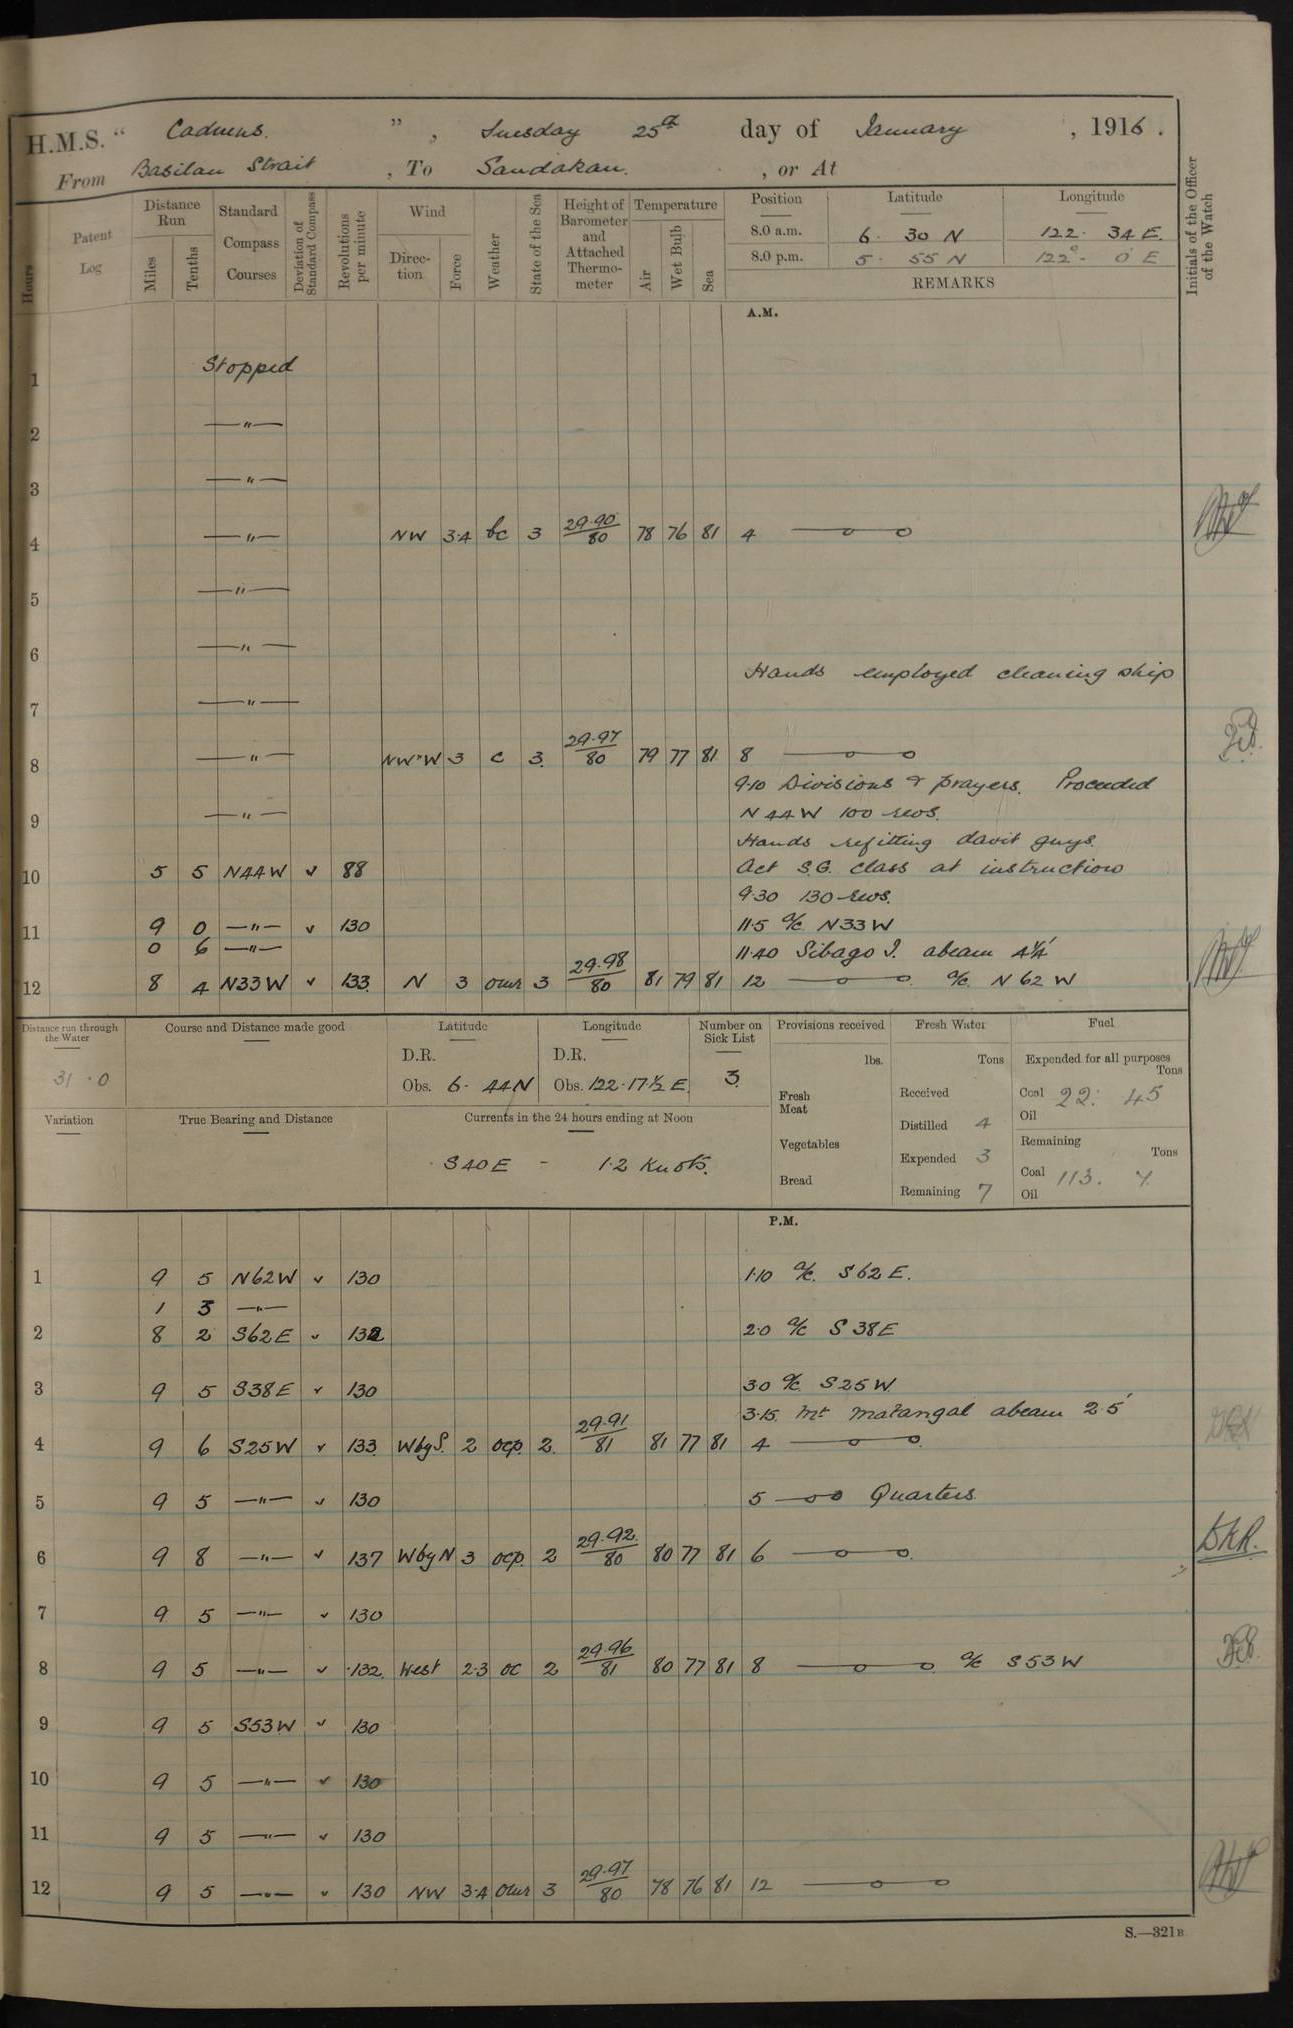 H.M.S. " Cadmus. " , Tuesday 25th day of January , 1916 .
From Basilan Strait , To Sandakan. , or At
Hours
Patent Log
Distance Run
Miles
Tenths
Standard Compass Courses
Deviation of Standard Compass
Revolutions per minute
Wind
Direction
Force
Weather
State of the Sea
Height of Barometer and Attached Thermometer
Temperature
Air
Wet Bulb
Sea
Position Latitude Longitude
8.0 a.m. 6. 30 N 122. 34 E.
8.0 p.m. 5. 55 N 122° - 0' E
REMARKS
Initials of the Officer of the Watch
A.M.
1 Stopped
2 —"—
3 —"—
4 —"— NW 3.4 bc 3 29.90/80 78 76 81 4
5 —"—
6 —"—
Hands employed cleaning ship
7 —"—
8 —"— NW"W 3 c 3. 29.97/80 79 77 81 8
9.10 Divisions & prayers. Proceeded
9 —"— N 44 W 100 revs.
Hands refitting davit guys.
10 5 5 N44W ✓ 88 Act S.G. class at instruction
9.30 130 revs.
11 9 0 —"— ✓ 130 11.5 a/c N33W
0 6 —"— 11.40 Sibago I. abeam 4¼'
12 8 4 N33W ✓ 133 N 3 omr 3 29.98/80 81 79 81 12 a/c N 62 W
Distance run through the Water
31.0
Course and Distance made good
Latitude
D.R.
Obs. 6. 44 N
Longitude
D.R.
Obs. 122.17½ E.
Number on Sick List
3.
Provisions received
lbs.
Fresh Meat
Vegetables
Bread
Fresh Water
Tons
Received
Distilled 4
Expended 3
Remaining 7
Fuel
Expended for all purposes
Tons
Coal 22: 45
Oil
Remaining
Tons
Coal 113. 4
Oil
Variation
True Bearing and Distance
Currents in the 24 hours ending at Noon
S40E - 1.2 Knots.
P.M.
1 9 5 N62W ✓ 130 1.10 a/c. S62E.
1 3 —"—
2 8 2 S62E ✓ 132 2.0 a/c S 38E
3 9 5 S38E ✓ 130 3.0 a/c. S25W
3.15. Mt Matangal abeam 2.5'
4 9 6 S25W ✓ 133 WbyS. 2 ocp. 2. 29.91/81 81 77 81 4
5 9 5 —"— ✓ 130 5 Quarters
6 9 8 —"— ✓ 137 WbyN 3 ocp. 2 29.92/80 80 77 81 6 DKR.
7 9 5 —"— ✓ 130
8 9 5 —"— ✓ 132. West 2.3 oc 2 29.96/81 80 77 81 8 a/c S53W
9 9 5 S53W ✓ 130
10 9 5 —"— ✓ 130
11 9 5 —"— ✓ 130
12 9 5 —"— ✓ 130 NW 3.4 omr 3 29.97/80 78 76 81 12
S.—321B